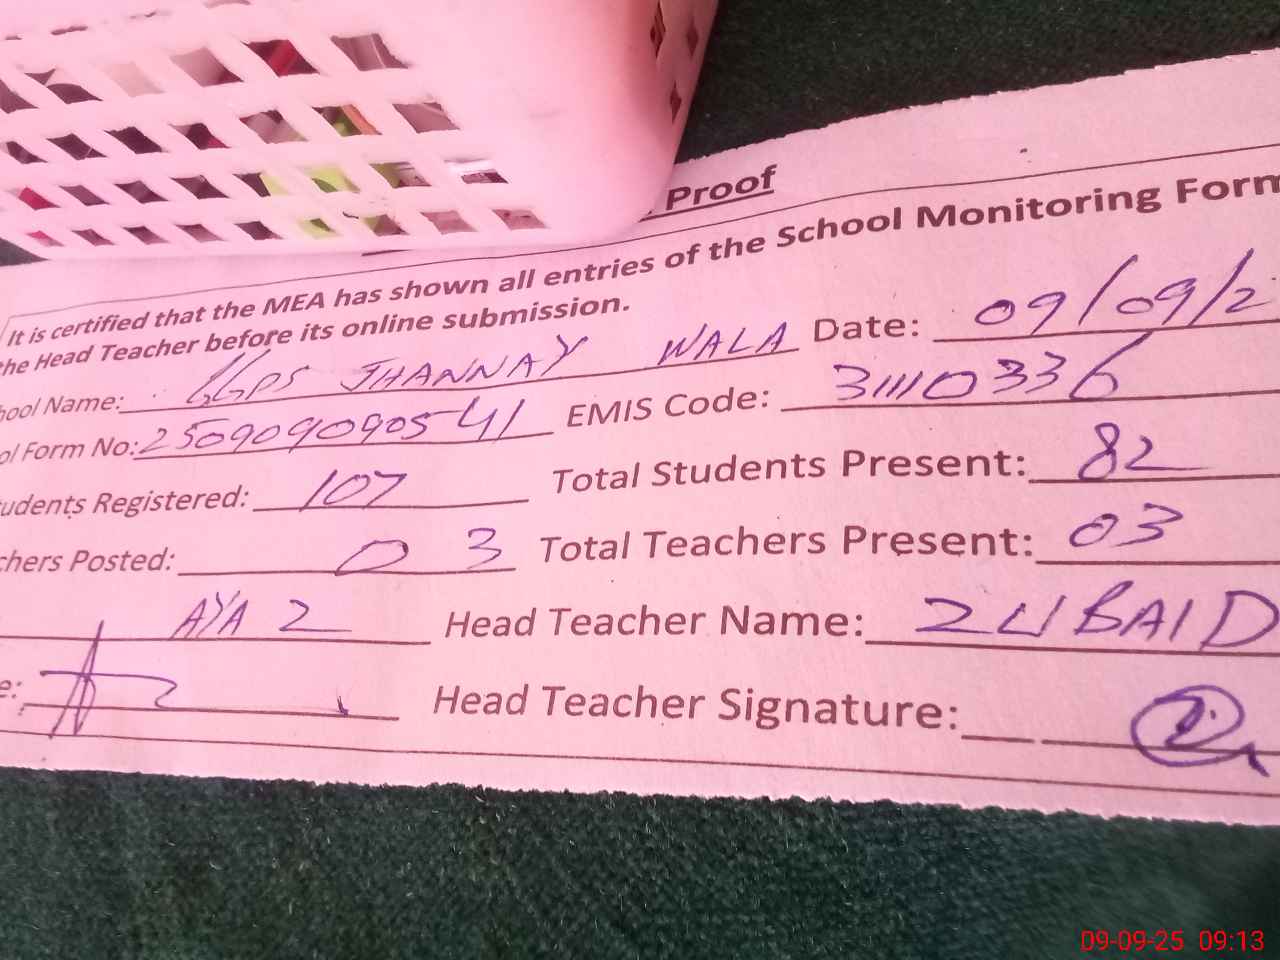 Proof
It is certified that the MEA has shown all entries of the School Monitoring Form
the Head Teacher before its online submission.
hool Name: GGPS JHANNAY WALA Date: 09/09/2
ol Form No: 25090909054 41 EMIS Code: 31110336
udents Registered: 107 Total Students Present: 82
chers Posted: 03 Total Teachers Present: 03
AYAZ Head Teacher Name: ZUBAID
e: Head Teacher Signature:
09-09-25 09:13